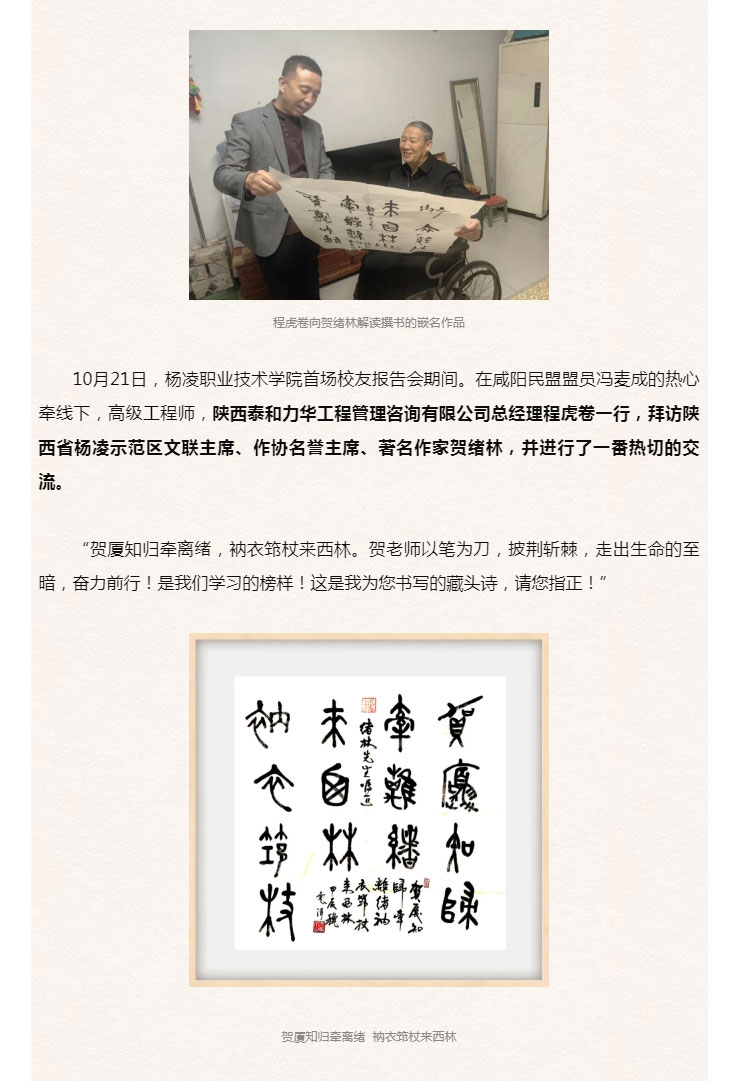 程虎卷向贺绪林解读撰书的嵌名作品
10月21日，杨凌职业技术学院首场校友报告会期间。在咸阳民盟盟员冯麦成的热心
牵线下，高级工程师，陕西泰和力华工程管理咨询有限公司总经理程虎卷一行，拜访陕
西省杨凌示范区文联主席、作协名誉主席、著名作家贺绪林，并进行了一番热切的交
流。
“贺厦知归牵离绪，衲衣筇杖来西林。贺老师以笔为刀，披荆斩棘，走出生命的至
暗，奋力前行！是我们学习的榜样！这是我为您书写的藏头诗，请您指正！”
賀厦知歸
牽離緒
绪林先生
来西林
衲衣筇杖
贺厦知
歸牵
離绪衲
衣筇杖
来西林
甲辰
贺厦知归牵离绪 衲衣筇杖来西林